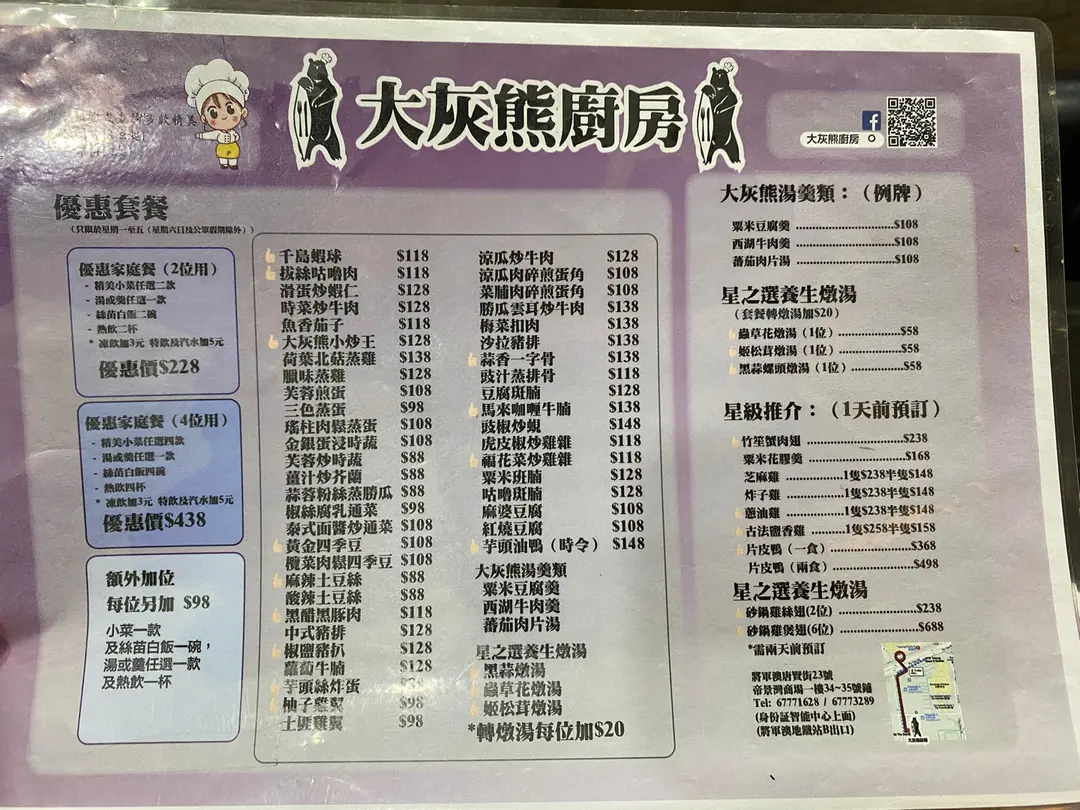 大灰熊廚房
大灰熊廚房
優惠套餐
（只限於星期一至五（星期六日及公眾假期除外））
優惠家庭餐（2位用）
- 精美小菜任選二款
- 湯或羹任選一款
- 絲苗白飯二碗
- 熱飲二杯
* 凍飲加3元 特飲及汽水加5元
優惠價$228
優惠家庭餐（4位用）
- 精美小菜任選四款
- 湯或羹任選一款
- 絲苗白飯四碗
- 熱飲四杯
* 凍飲加3元 特飲及汽水加5元
優惠價$438
額外加位
每位另加 $98
小菜一款
及絲苗白飯一碗，
湯或羹任選一款
及熱飲一杯
千島蝦球 $118
拔絲咕嚕肉 $118
滑蛋炒蝦仁 $128
時菜炒牛肉 $128
魚香茄子 $118
大灰熊小炒王 $128
荷葉北菇蒸雞 $138
臘味蒸雞 $128
芙蓉煎蛋 $108
三色蒸蛋 $98
瑤柱肉鬆蒸蛋 $108
金銀蛋浸時蔬 $108
芙蓉炒時蔬 $88
薑汁炒芥蘭 $88
蒜蓉粉絲蒸勝瓜 $88
椒絲腐乳通菜 $98
泰式面醬炒通菜 $108
黃金四季豆 $108
欖菜肉鬆四季豆 $108
麻辣土豆絲 $88
酸辣土豆絲 $88
黑醋黑豚肉 $118
中式豬排 $128
椒鹽豬扒 $128
蘿蔔牛腩 $128
芋頭絲炸蛋
柚子雞翼 $98
土匪雞翼 $98
涼瓜炒牛肉 $128
涼瓜肉碎煎蛋角 $108
菜脯肉碎煎蛋角 $108
勝瓜雲耳炒牛肉 $138
梅菜扣肉 $138
沙拉豬排 $138
蒜香一字骨 $138
豉汁蒸排骨 $118
豆腐斑腩 $128
馬來咖喱牛腩 $138
豉椒炒蜆 $148
虎皮椒炒雞雜 $118
福花菜炒雞雜 $118
粟米班腩 $128
咕嚕斑腩 $128
麻婆豆腐 $108
紅燒豆腐 $108
芋頭油鴨（時令） $148
大灰熊湯羹類
粟米豆腐羹
西湖牛肉羹
蕃茄肉片湯
星之選養生燉湯
黑蒜燉湯
蟲草花燉湯
姬松茸燉湯
*轉燉湯每位加$20
大灰熊湯羹類：（例牌）
粟米豆腐羹 $108
西湖牛肉羹 $108
蕃茄肉片湯 $108
星之選養生燉湯
（套餐轉燉湯加$20）
蟲草花燉湯（1位） $58
姬松茸燉湯（1位） $58
黑蒜螺頭燉湯（1位） $58
星級推介：（1天前預訂）
竹笙蟹肉翅 $238
粟米花膠羹 $168
芝麻雞 1隻$238半隻$148
炸子雞 1隻$238半隻$148
蔥油雞 1隻$238半隻$148
古法鹽香雞 1隻$258半隻$158
片皮鴨（一食） $368
片皮鴨（兩食） $498
星之選養生燉湯
砂鍋雞絲翅(2位) $238
砂鍋雞煲翅(6位) $688
*需兩天前預訂
將軍澳唐賢街23號
帝景灣商場一樓34~35號鋪
Tel: 67771628 / 67773289
(身份証智能中心上面)
(將軍澳地鐵站B出口)